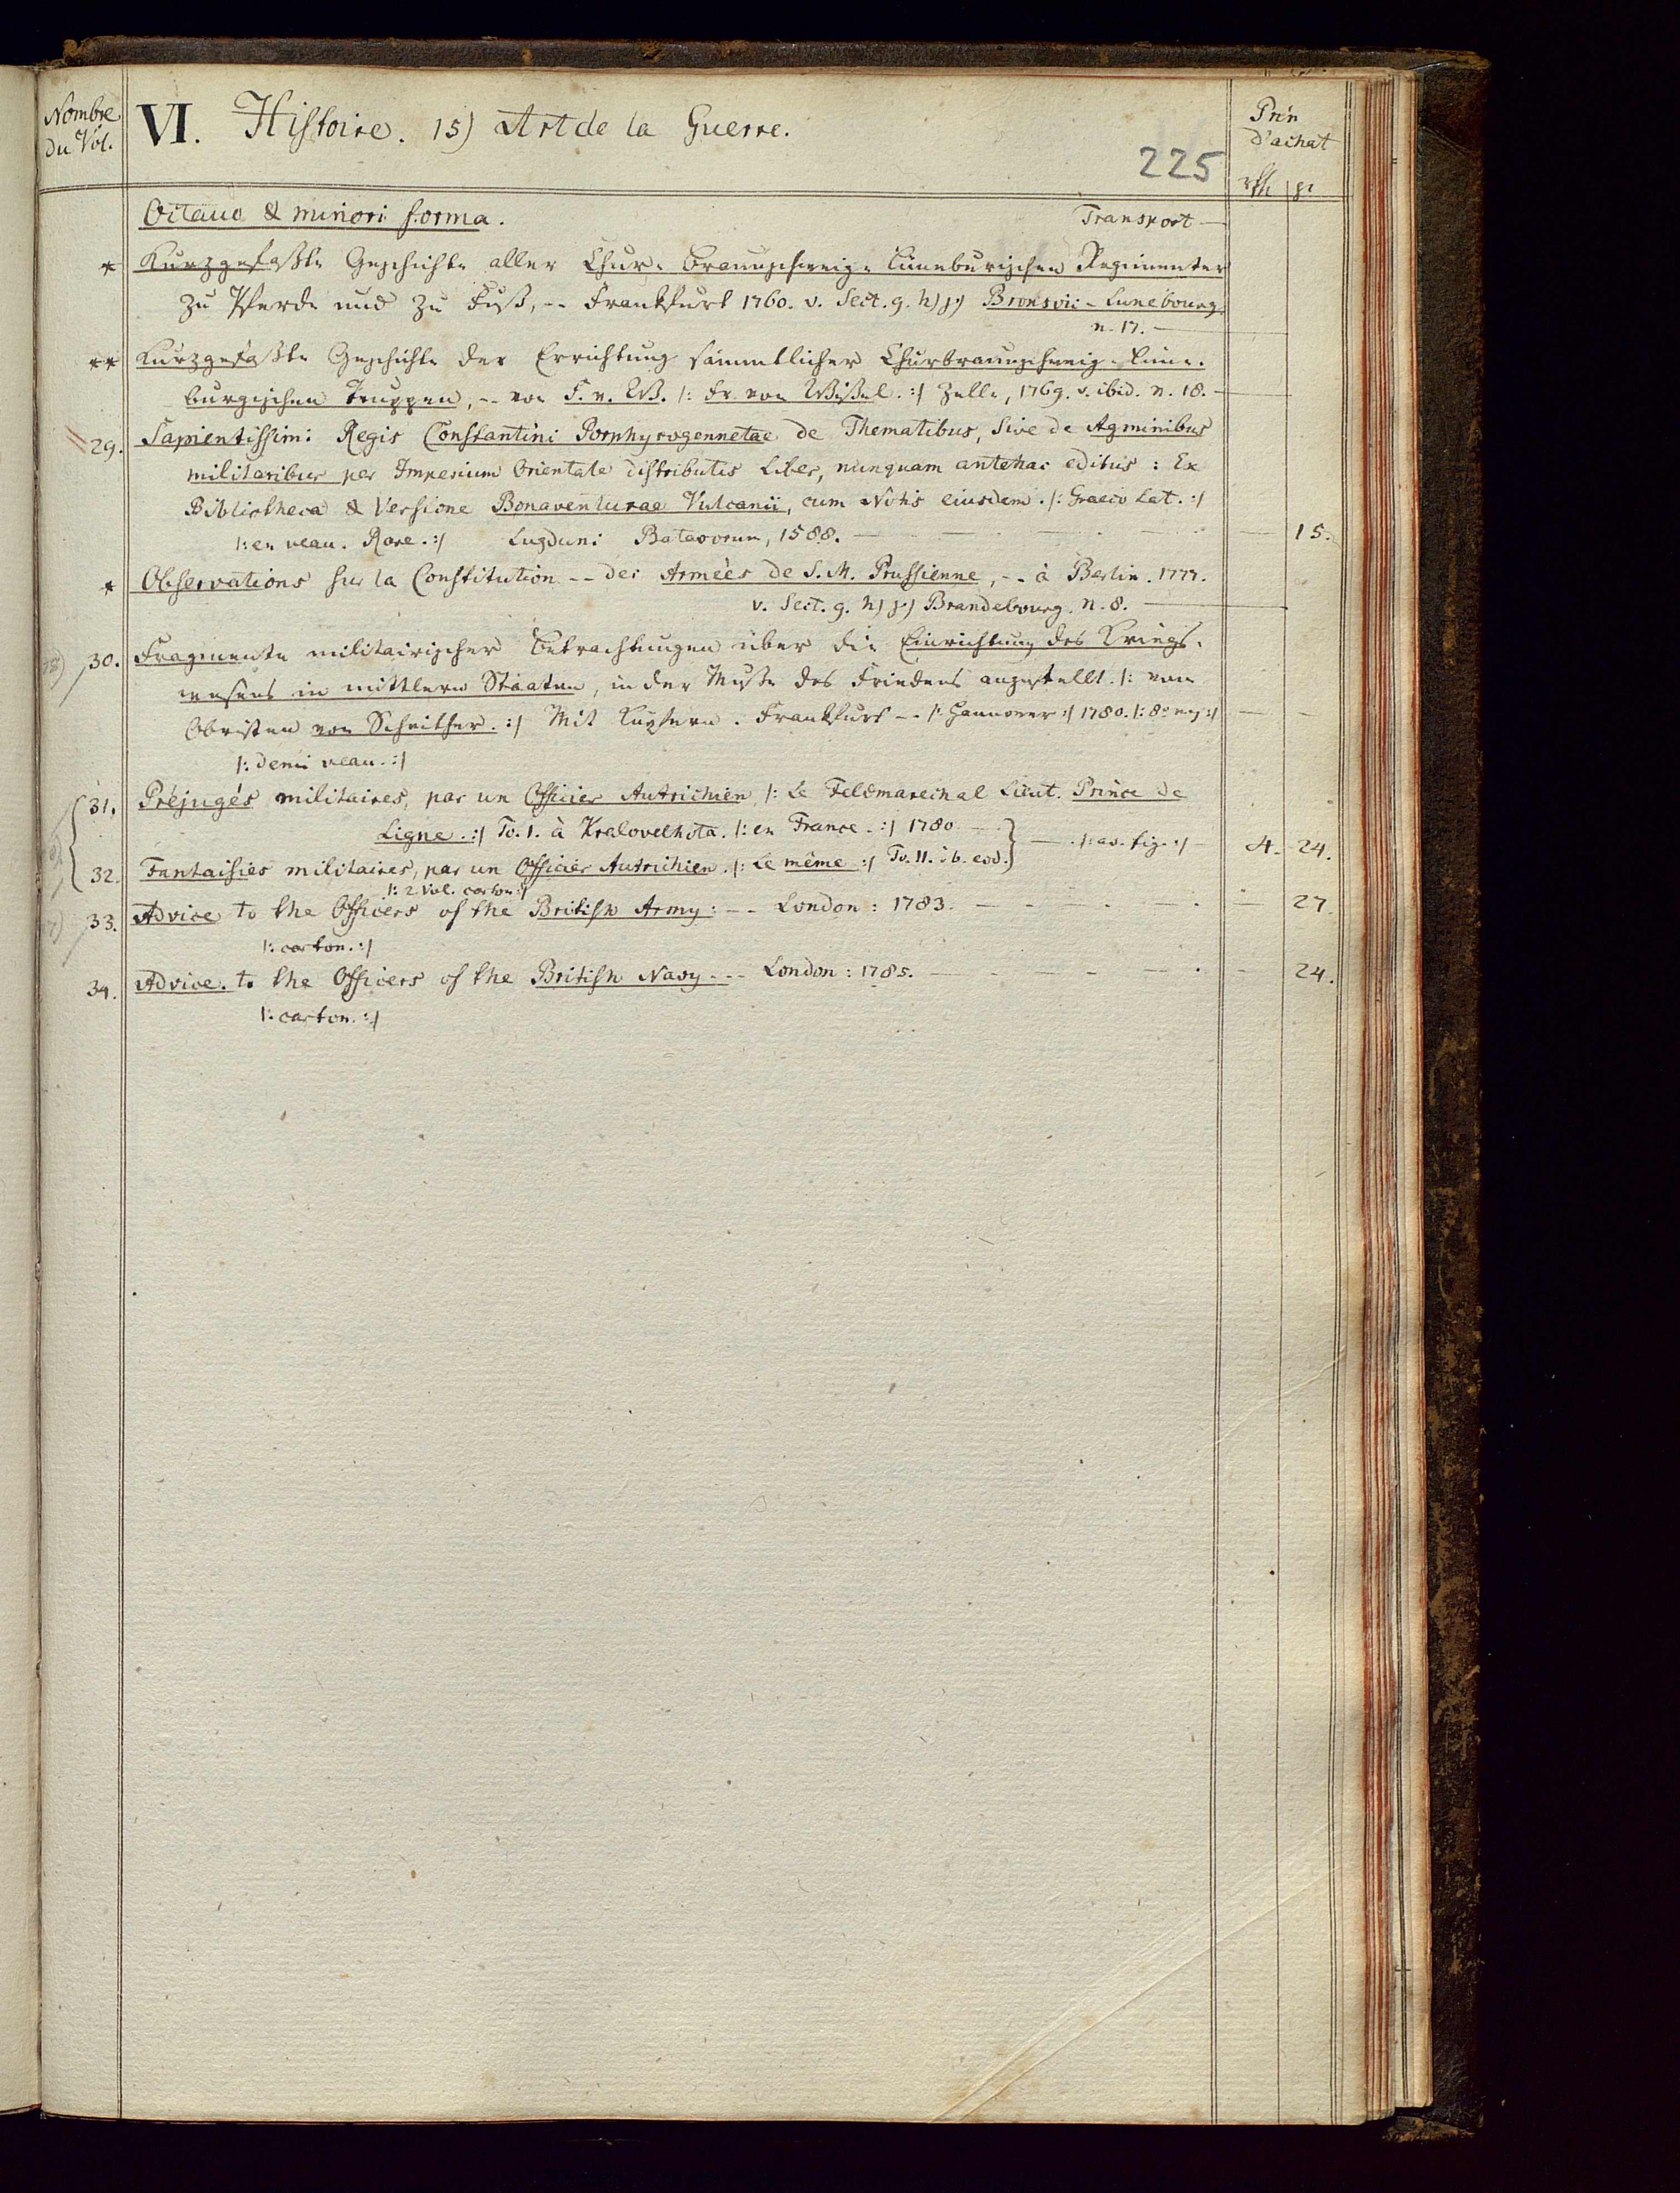 Nombre du Vol.
VI. Histoire. 15) Art de la Guerre.
Prix d'achat
225
rth gr
Octauo & minori forma. Transport —
* Kurzgefaßte Geschichte aller Chur-Braunschweig-Lüneburgischen Regimenter
zu Pferde und zu Fuß, -- Frankfurt 1760. v. Sect. 9. h) j.) Bronsvic-Lunebourg.
n. 17. —
** Kurzgefaßte Geschichte der Errichtung sämmtlicher Churbraunschweig-Lüne-
burgischen Truppen, -- von F. v. W. /: Fr. von Wißel. :/ Zelle, 1769. v. ibid. n. 18. —
29. Sapientissimi Regis Constantini Porphyrogennetae de Thematibus, Sive de Agminibus
militaribus per Imperium Orientale distributis Liber, nunquam antehac editus: Ex
Bibliotheca & Versione Bonaventurae Vulcanii, cum Notis eiusdem. /: Graeco Lat. :/
/: en veau. Rare. :/ Lugduni Batavorum, 1588. — — 15.
* Observations sur la Constitution -- des Armées de S. M. Prussienne, -- à Berlin. 1777.
v. Sect. 9. h) j.) Brandebourg. n. 8. —
30. Fragmente militairischer Betrachtungen über die Einrichtung des Kriegs-
wesens in mittlern Staaten, in der Muße des Friedens angestellt. /: vom
Obristen von Scheither. :/ Mit Kupfern. Frankfurt -- /: Hannover :/ 1780. /: 8° maj :/ — —
/: demi veau. :/
31. Préjugés militaires, par un Officier Autrichien /: Le Feldmarechal Lieut. Prince de
Ligne. :/ To. 1. à Kralovelhota. /: en France. :/ 1780 —
— /: av. fig. :/ — 4. 24.
32. Fantaisies militaires, par un Officier Autrichien. /: Le même :/ To. 11. ib. eod.
/: 2 Vol. carton :/
33. Advice to the Officers of the British Army: -- London: 1783. — — 27.
/: carton. :/
34. Advice to the Officers of the British Navy --- London: 1785. — — 24.
/: carton. :/